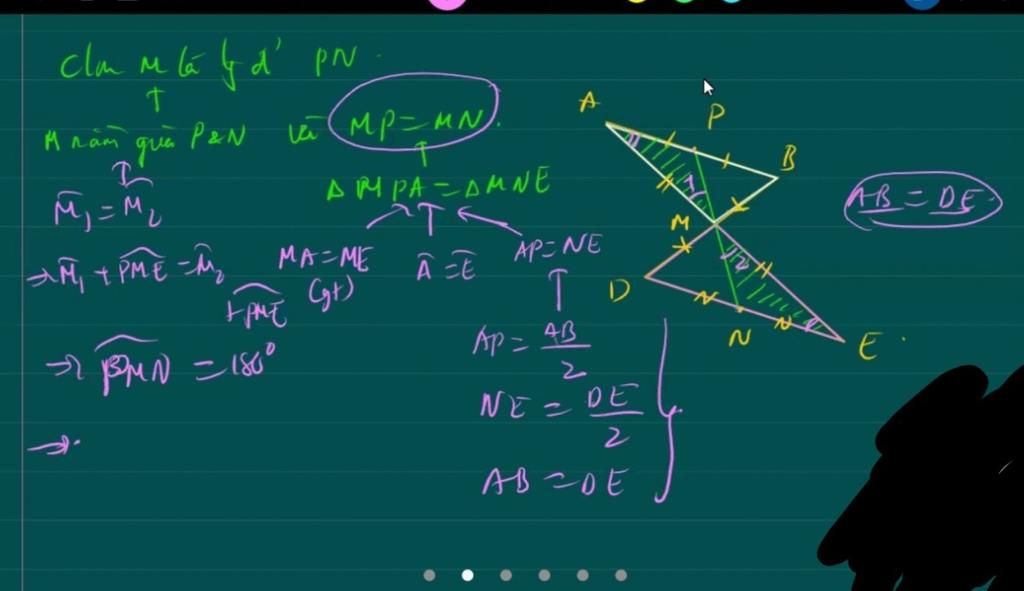 Clm M là tđ' PN.
M nằm giữa P&N và MP=MN.
M̂₁ = M̂₂
ΔMPA = ΔMNE
→ M̂₁ + PME = M̂₂ + PME
MA = ME (gt)
Â = Ê
AP = NE
→ PMN = 180°
→
AP = AB/2
NE = DE/2
AB = DE
A
P
B
1
M
2
D
N
E
AB = DE